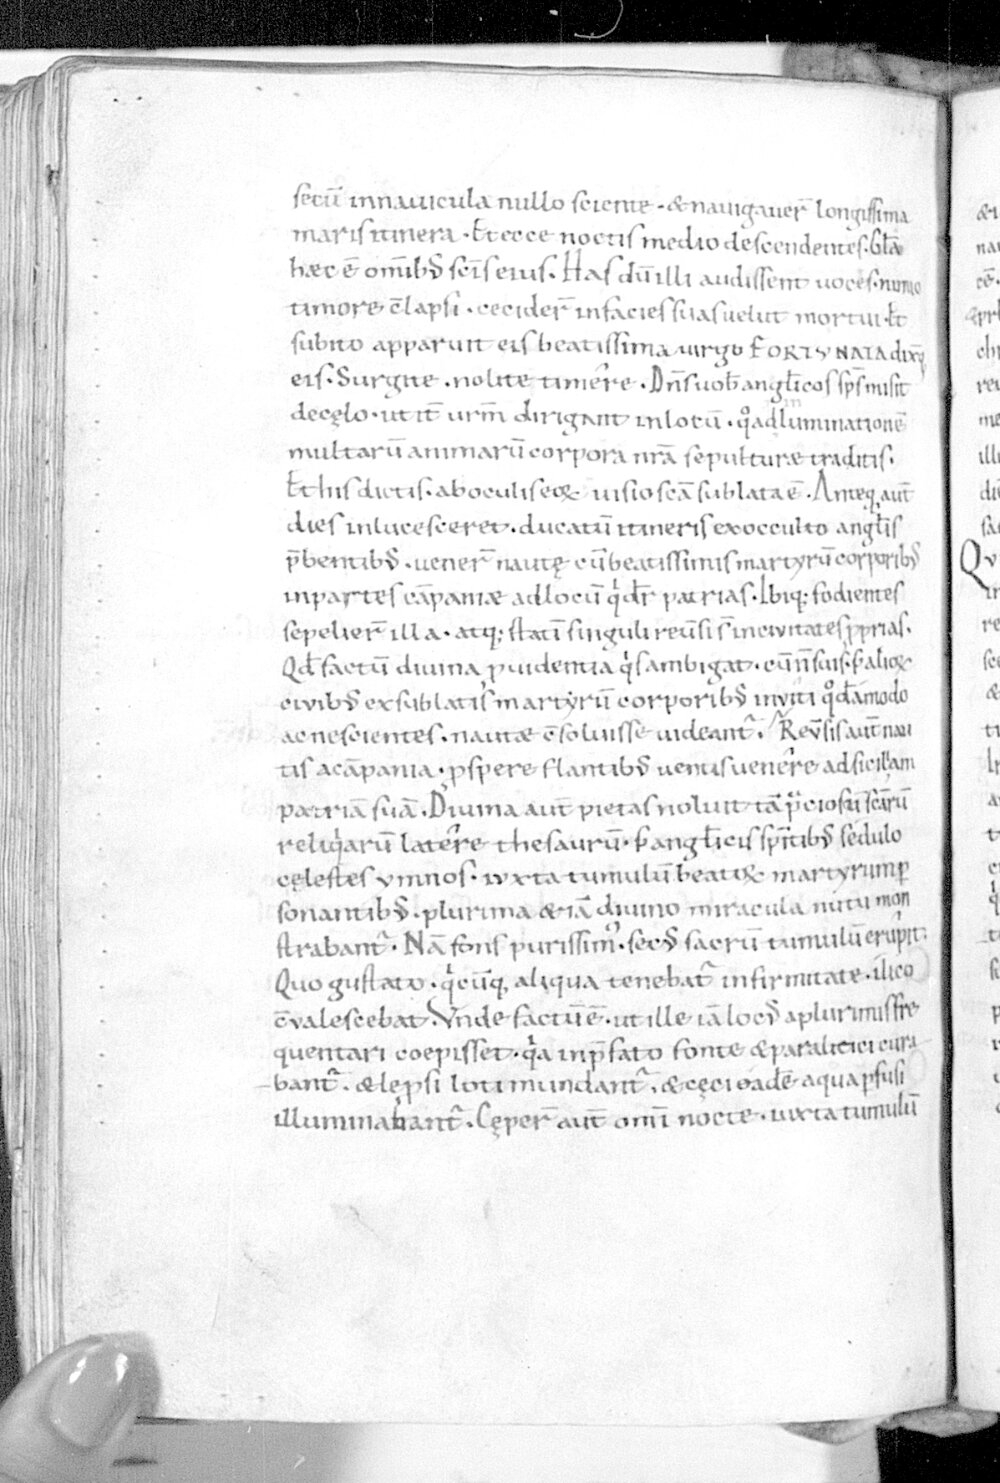 secū in nauicula nullo sciente · & nauigauer̄ longissima
maris itinera · Et ecce noctis medio descendentes · Gl̄a
hæc ē omīb; sc̄is eius · Has dū illi audissent uoces · nimio
timore c̄lapsi · cecider̄ in facies suas uelut mortui · Et
subito apparuit eis beatissima uirgo FORTVNATA dix̄q;
eis · Surgite · nolite timere · Dn̄s uob̄ angl̄icos sp̄s misit
de cęlo · ut it̄ urm̄ dirigant in locū · qo ad luminationē
multarū animarū corpora nr̄a sepulturæ traditis ·
Et his dictis · ab oculis eoꝝ uisio sc̄a sublata ē · Anteq; aut̄
dies inlucesceret · ducatū itineris ex occulto angl̄is
p̄bentib; · uener̄ nautę · cū beatissimis martyrū corporib;
in partes cāpaniæ ad locū qi dr̄ patrias · Ibiq; fodientes
sepelier̄ illa · atq; statī singuli reūsi s̄ in ciuitates ꝓprias ·
Qd̄ factū diuina ꝓuidentia qis ambigat · cū n̄ suis · s; alioꝝ
ciuib; ex sublatis martyrū corporib; inuiti qodāmodo
ac nescientes · nautæ c̄soluisse uideant᷑ · Reūsis aut̄ nau
tis a cāpania · ꝓspere flantib; uentis uenere ad siciliam
patriā suā · Diuina aut̄ pietas noluit tā p̄ciosū sc̄arū
reliqiarū latere thesaurū · s; angl̄icis sp̄itib; sedulo
cęlestes ymnos · iuxta tumulū beatoꝝ martyrum ꝑ
sonantib; · plurima & iā diuino miracula nutu mon
strabant᷑ · Nā fons purissim᷒ · secd; sacrū tumulū erupit ·
Quo gustato · qicūq; aliqua tenebat᷑ infirmitate · ilico
c̄ualescebat · Vnde factū ē · ut ille iā loc᷒ a plurimis fre
quentari coepisset · qia in p̄fato fonte & paralitici cura
bant᷑ · & lępsi loti mundant᷑ · & cęci eadē aqua ꝑfusi
illuminabant᷑ · Cęper̄ aut̄ omī nocte · iuxta tumulū